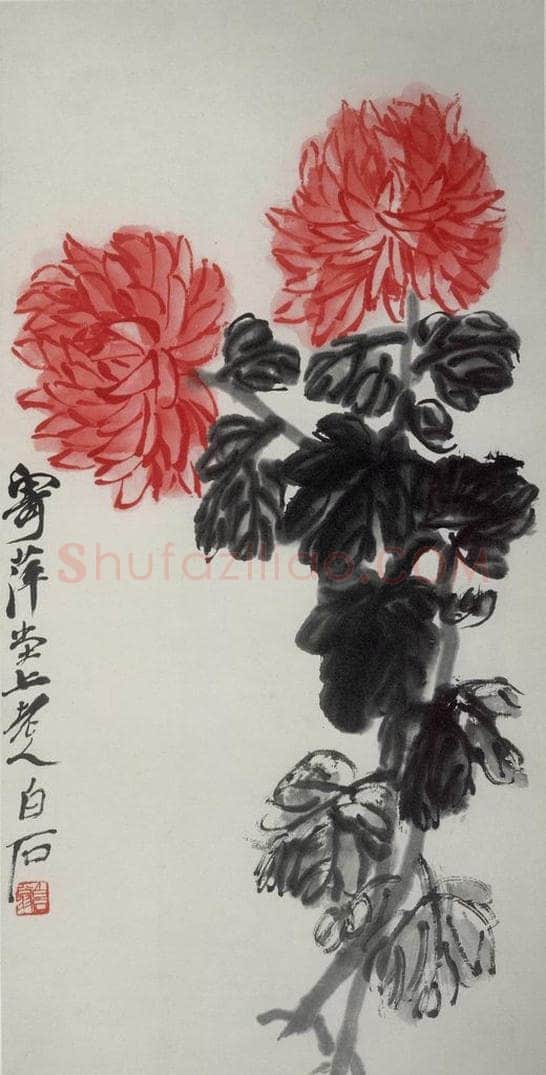 寄萍堂上老人白石
Shufaziliao.COM